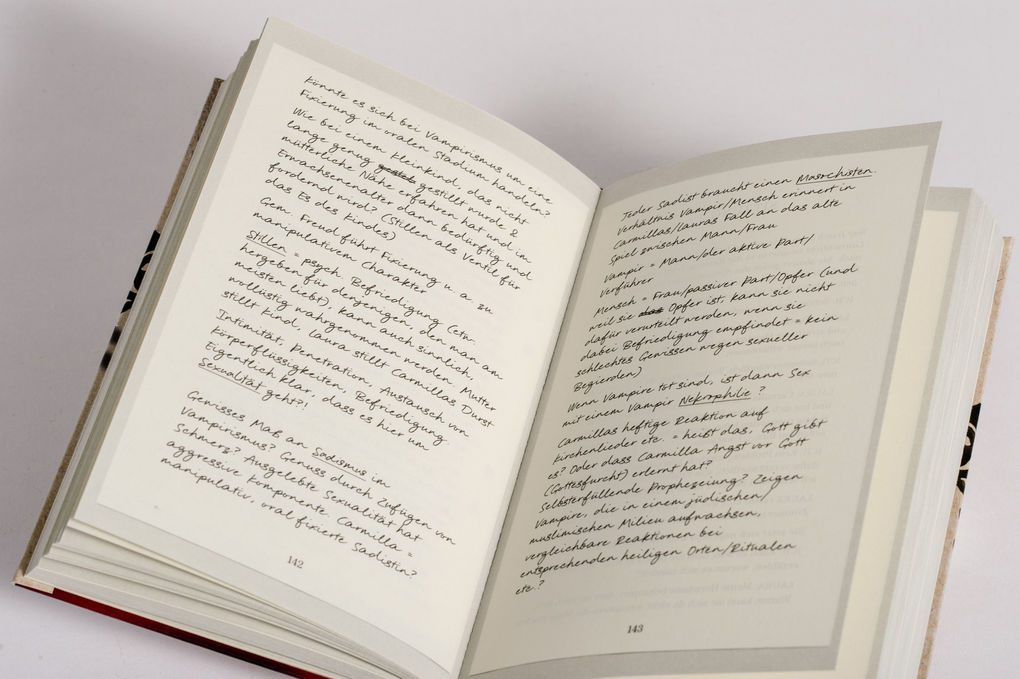 könnte es sich bei Vampirismus um eine
Fixierung im oralen Stadium handeln?
Wie bei einem Kleinkind, das nicht
lange genug gestillt wurde &
mütterliche Nähe erfahren hat und im
Erwachsenenalter dann bedürftig und
fordernd wird? (Stillen als Ventil für
das Es des Kindes)
Gem. Freud führt Fixierung u. a. zu
manipulativem Charakter.
Stillen = psych. Befriedigung (etw.
hergeben für denjenigen, den man am
meisten liebt), kann auch sinnlich,
wollüstig wahrgenommen werden. Mutter
stillt Kind, Laura stillt Carmillas Durst
Intimität, Penetration, Austausch von
Körperflüssigkeiten, Befriedigung.
Eigentlich klar, dass es hier um
Sexualität geht?!
Gewisses Maß an Sadismus im
Vampirismus? Genuss durch Zufügen von
Schmerz? Ausgelebte Sexualität hat
aggressive Komponente. Carmilla =
manipulativ, oral fixierte Sadistin?
142
Jeder Sadist braucht einen Masochisten.
Verhältnis Vampir/Mensch erinnert in
Carmillas/Lauras Fall an das alte
Spiel zwischen Mann/Frau
Vampir = Mann/der aktive Part/
Verführer
Mensch = Frau/passiver Part/Opfer (und
weil sie das Opfer ist, kann sie nicht
dafür verurteilt werden, wenn sie
dabei Befriedigung empfindet = kein
schlechtes Gewissen wegen sexueller
Begierden)
Wenn Vampire tot sind, ist dann Sex
mit einem Vampir Nekrophilie?
Carmillas heftige Reaktion auf
Kirchenlieder etc. = heißt das, Gott gibt
es? Oder dass Carmilla Angst vor Gott
(Gottesfurcht) erlernt hat?
Selbsterfüllende Prophezeiung? Zeigen
Vampire, die in einem jüdischen/
muslimischen Milieu aufwachsen,
vergleichbare Reaktionen bei
entsprechenden heiligen Orten/Ritualen
etc.?
143